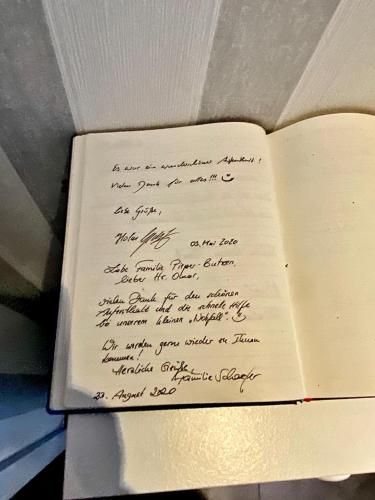 Es war ein wunderschöner Aufenthalt!
Vielen Dank für alles!!!
Liebe Grüße,
03. Mai 2020
Liebe Familie Pieper-Butzon,
lieber Hr. Omar,
vielen Dank für den schönen
Aufenthalt und die schnelle Hilfe
bei unserem kleinen „Notfall“.
Wir werden gerne wieder zu Ihnen
kommen!
Herzliche Grüße
Familie Schaefer
23. August 2020